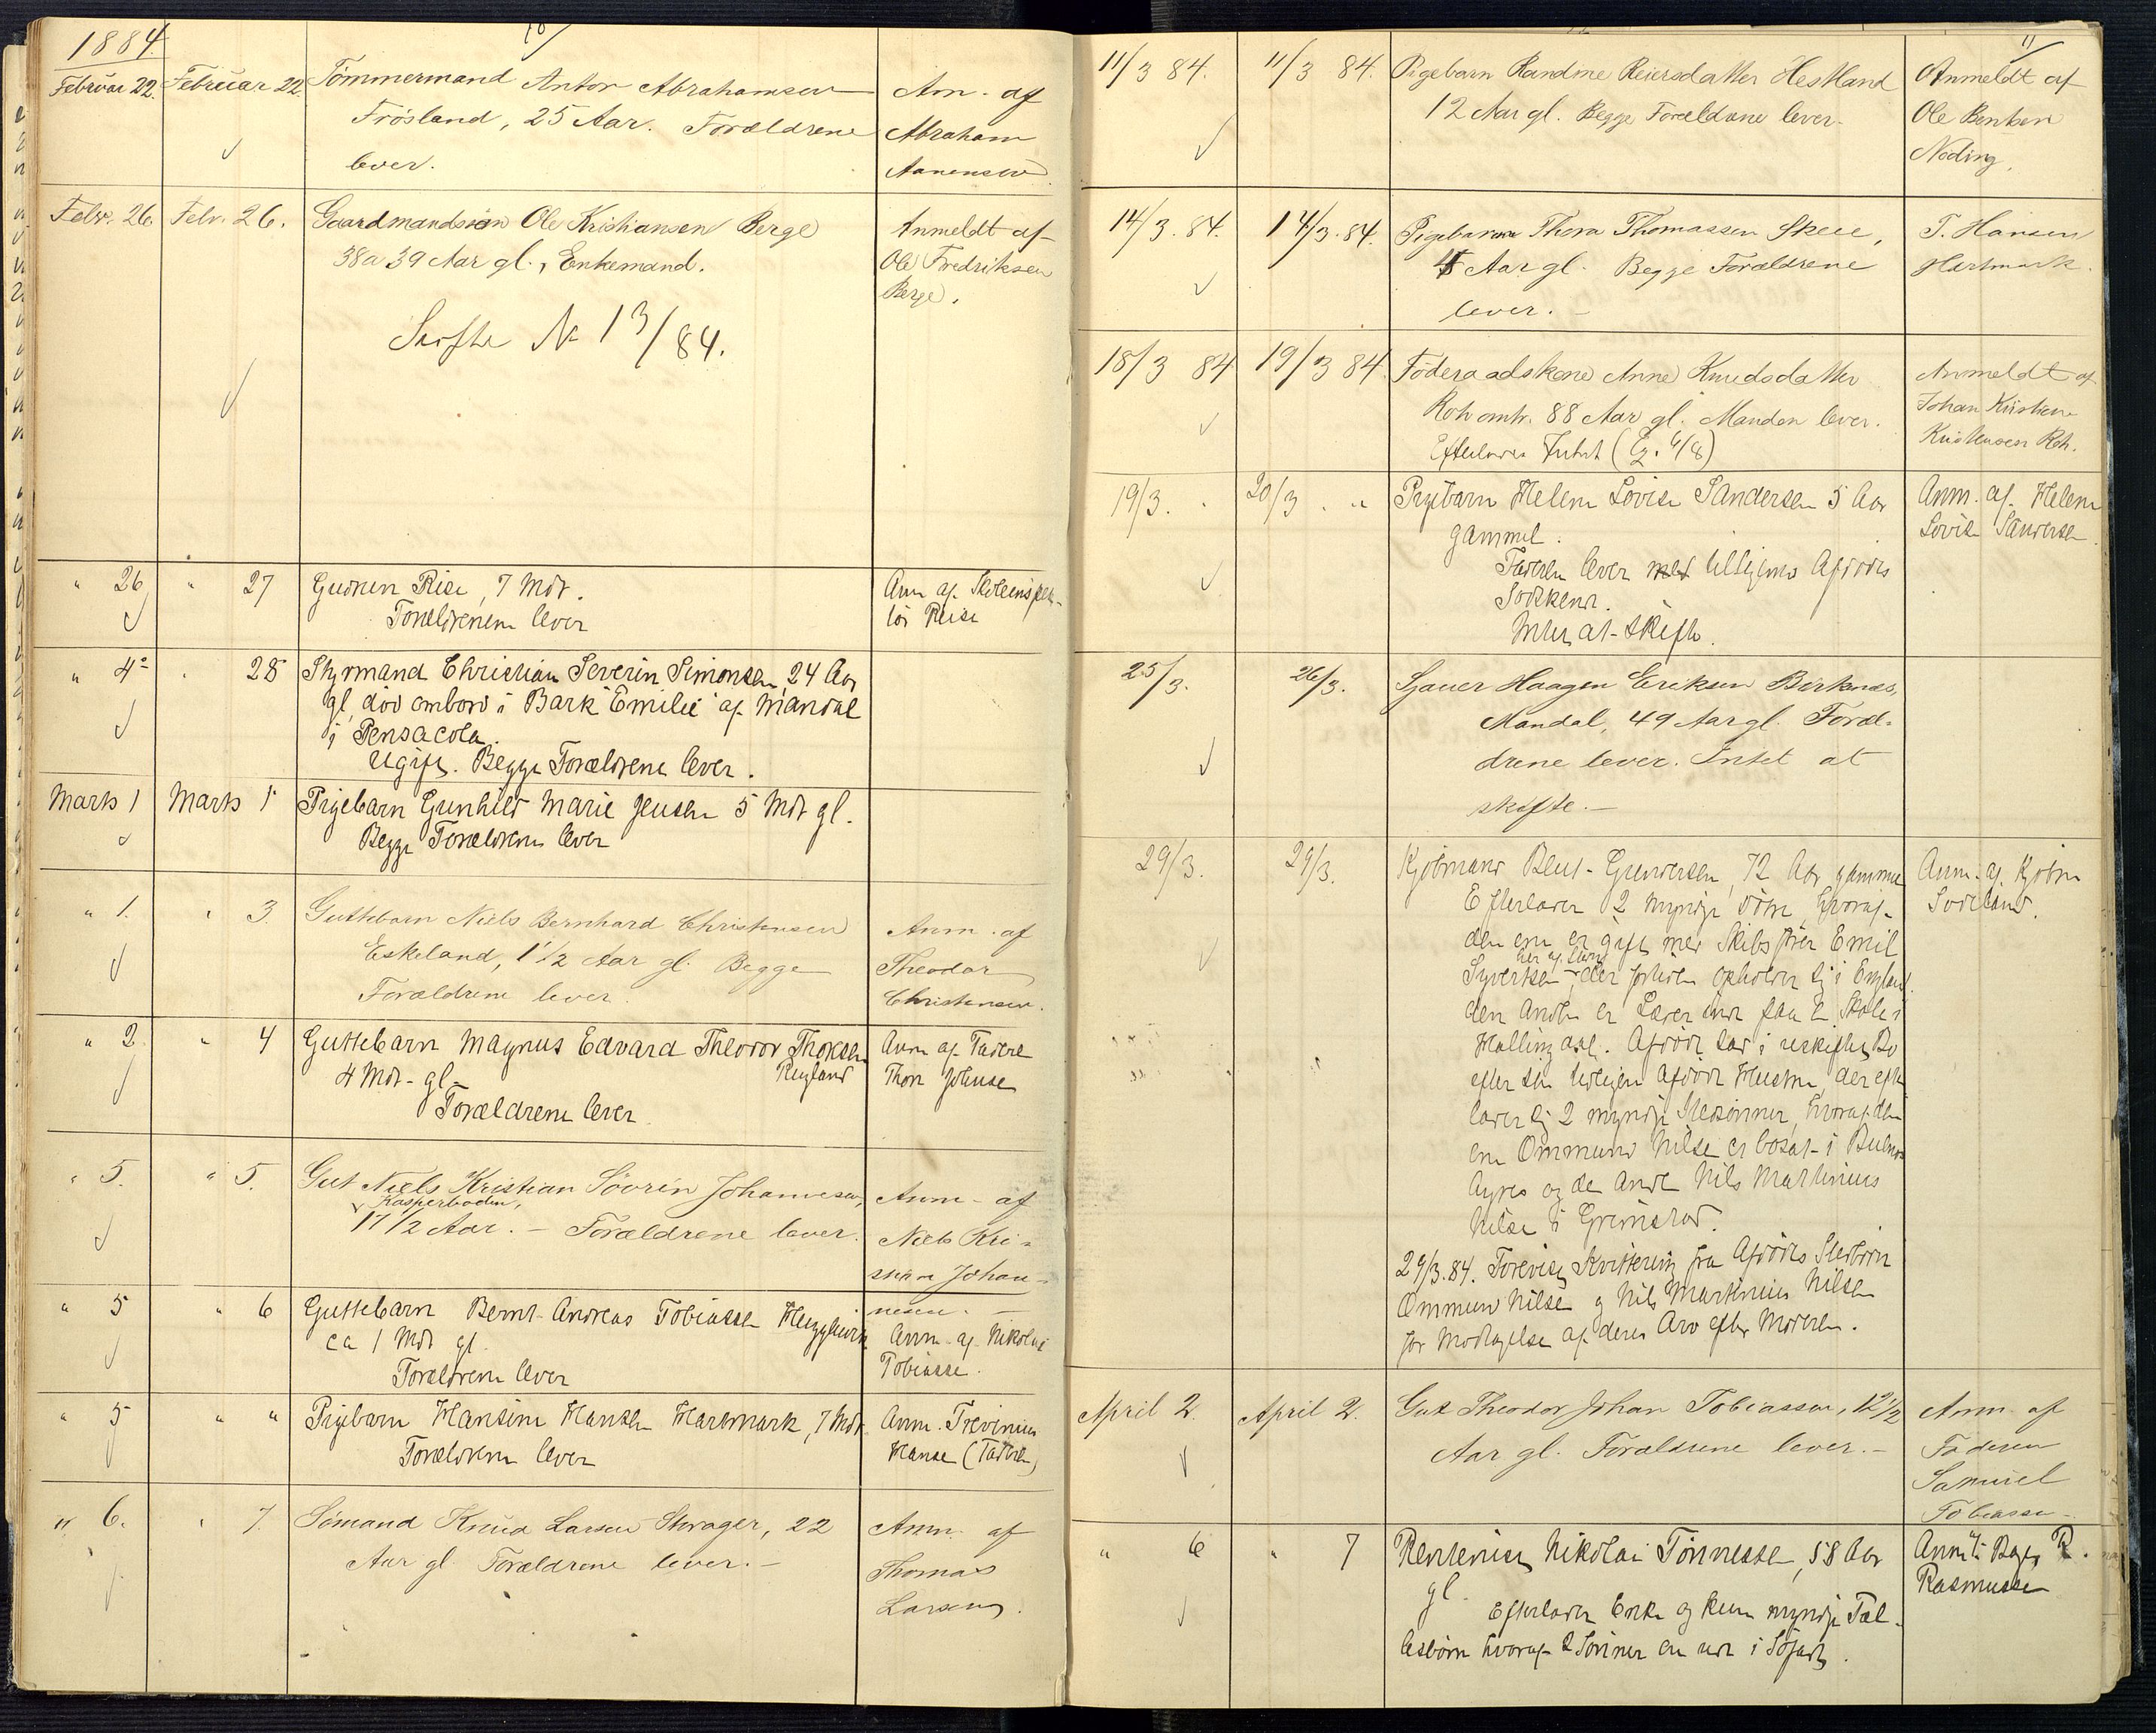 1884.
10/
Februar 22. Februar 22. Tömmermand Anton Abrahamsen
Frösland, 25 Aar. Forældrene
lever.
Anm. af
Abraham
Aanensen.
Febr. 26. Febr. 26. Gaardmandssön Ole Kristiansen Berge
38 a 39 Aar gl., Enkemand.
Skifte No 13/84.
Anmeldt af
Ole Fredriksen
Berge.
" 26 " 27 Gudrun Rise, 7 Mdr.
Forældrene lever
Anm af Skoleinspek-
tör Reise
" 4 " 28 Styrmand Christian Severin Simonsen, 24 Aar
gl, död ombord i Bark Emilie af Mandal
i Pensacola.
Ugift. Begge Forældrene lever.
Marts 1 Marts 1 Pigebarn Gunhild Marie Jensen 5 Mdr gl.
Begge Forældrene lever
" 1. " 3. Guttebarn Niels Bernhard Christensen
Eskeland, 1 1/2 Aar gl. Begge
Forældrene lever.
Anm. af
Theodor
Christensen.
" 2 " 4 Guttebarn Magnus Edvard Theodor Thorsen
4 Mdr. gl.
Forældrene lever
Anm af Faderen
Thor Johnsen
" 5. " 5. Gut Niels Kristian Sövrin Johannesen,
Kasperboden,
17 1/2 Aar. - Forældrene lever.
Anm. af
Niels Kri-
stian Johan-
nesen. -
" 5 " 6 Guttebarn Bernt Andreas Tobiassen
ca 1 Mdr gl.
Forældrene lever
Anm. af Nikolai
Tobiasse.
" 5 " " Pigebarn Hansine Hansen Hartmark, 7 Mdr
Forældrene lever
Anm. Trevinius
Hanse (Faderen)
" 6. " 7. Sömand Knud Larsen Skrager, 22
Aar gl. Forældrene lever. -
Anm. af
Thomas
Larsen.
11/
11/3 84. 11/3 84. Pigebarn Randine Reiersdatter Hestland
12 Aar gl. Begge Forældrene lever.
Anmeldt af
Ole Bentsen
Nöding.
14/3. 84. 14/3. 84. Pigebarn Thora Thomassen Skeie,
Aar gl. Begge Forældrene
lever. -
T. Hansen
Hartmark.
18/3 84 19/3 84. Föderaadskone Anne Knudsdatter
Roh omtr. 88 Aar gl. Manden lever.
Efterlader Intet
Anmeldt af
Johan Kristian
Kristensen Roh.
19/3. " 20/3 . " Pigebarn Helene Lovise Sandersen 5 Aar
gammel.
Faderen lever med tilligemed Afdödes
Södskende.
Intet at skifte.
Anm. af Helene
Lovise Sandersen.
25/3. 26/3. Sjauer Haagen Eriksen Birknes,
Mandal, 49 Aar gl. Foræl-
drene lever. Intet at
skifte. -
29/3. 29/3. Kjöbmand Bent Gundersen, 72 Aar gammel
Efterlader 2 myndige Dötre, hvoraf
den ene er gift med Skibsförer Emil
Syvertsen her af Byen, der for tiden opholder sig i England
den anden er Lærerinde paa en Skole i
Hallingdal. Afdöde sad i uskiftet Bo
efter sin tidligere afdöde Hustru, der efter-
lader sig 2 myndige Stedsönner, hvoraf den
ene Ommund Nilsen er bosat i Buenos
Ayres og den anden Nils Martinius
Nilsen i Grimstad.
29/3. 84. Foreviser Kvittering fra Afdödes Stedbörn
Ommund Nilsen og Nils Martinius Nilsen
for Modtagelse af deres Arv efter Moderen.
Anm. af Kjöbm
April 2. April 2. Gut Theodor Johan Tobiassen, 12 1/2
Aar gl. Forældrene lever. -
Anm. af
Faderen
Samuel
Tobiassen.
" 6 " 7 Rentenist Nikolai Tönnessen, 58 Aar
gl.
Efterlader Enke og kun myndige Fæl-
lesbörn hvoraf 2 Sönner er ude i Söfart.
Rasmussen